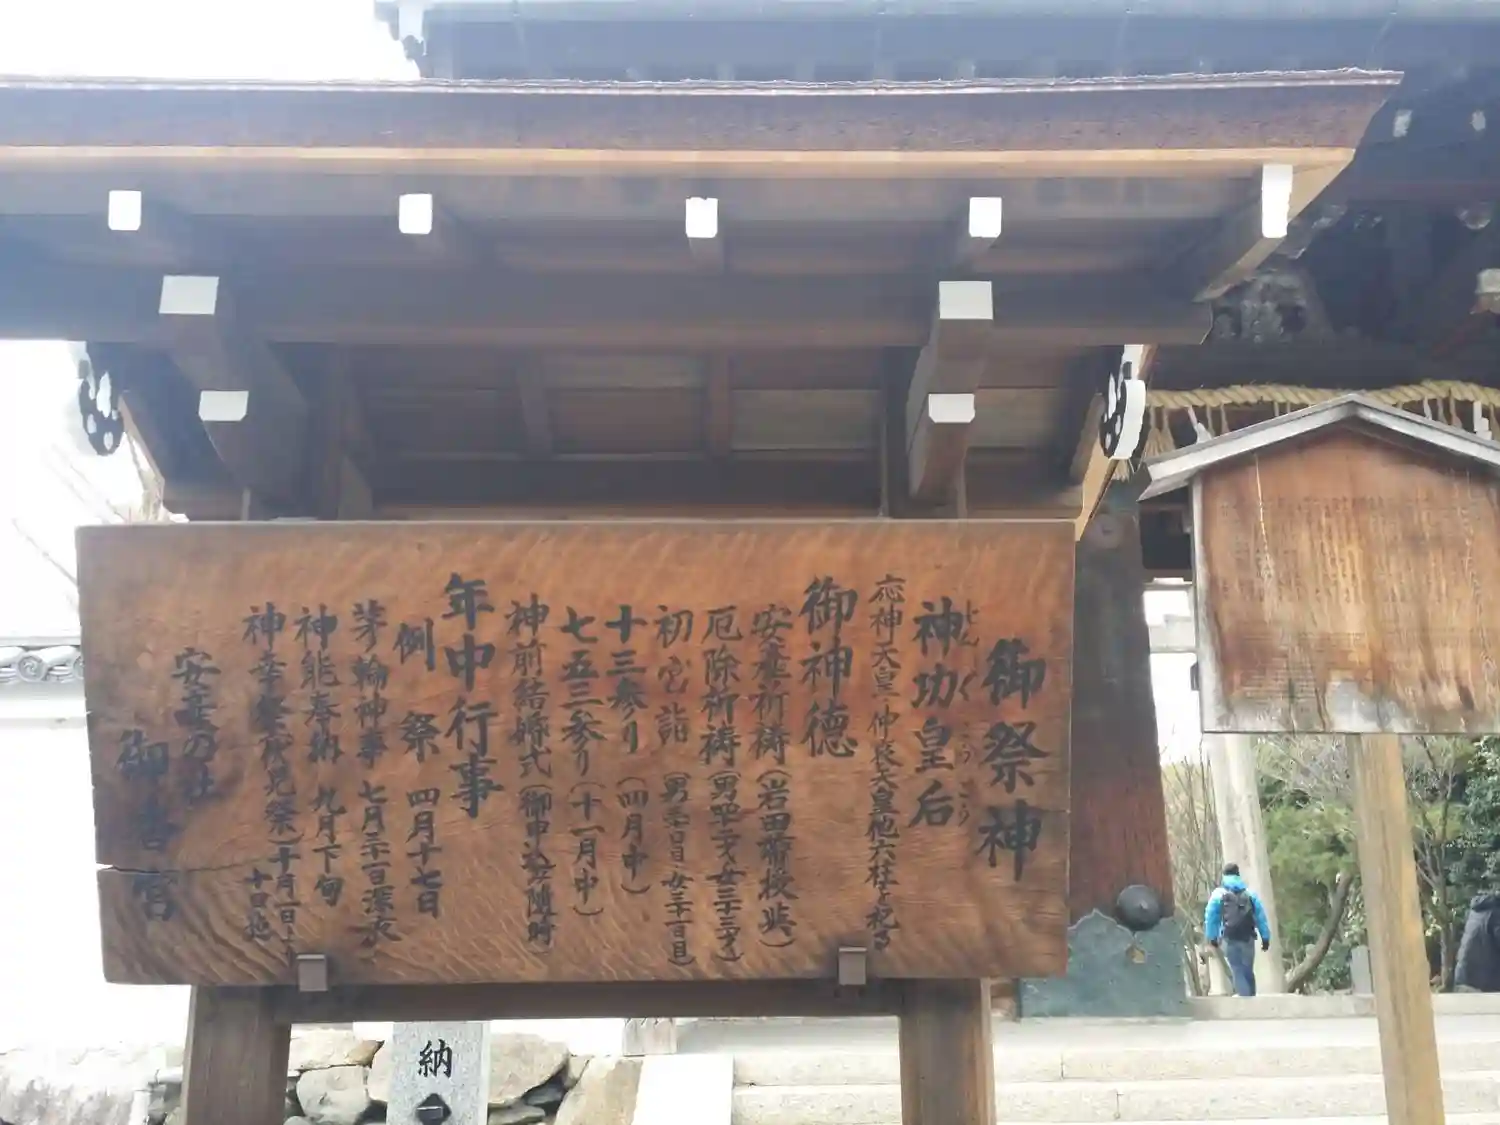 御祭神
神功皇后
じんぐうこうごう
応神天皇 仲哀天皇他六柱を祀る
御神徳
安産祈祷(岩田帯授與)
厄除祈祷(男四二才・女三十三才)
初宮詣(男 女三十一日目)
十三参り(四月中)
七五三参り(十一月中)
神前結婚式(御申込み随時)
年中行事
例祭 四月十七日
茅輪神事 七月三十一日深夜
神能奉納 九月下旬
神幸祭(伏見祭)十月一日
十日迄
安産の社
御香宮
納